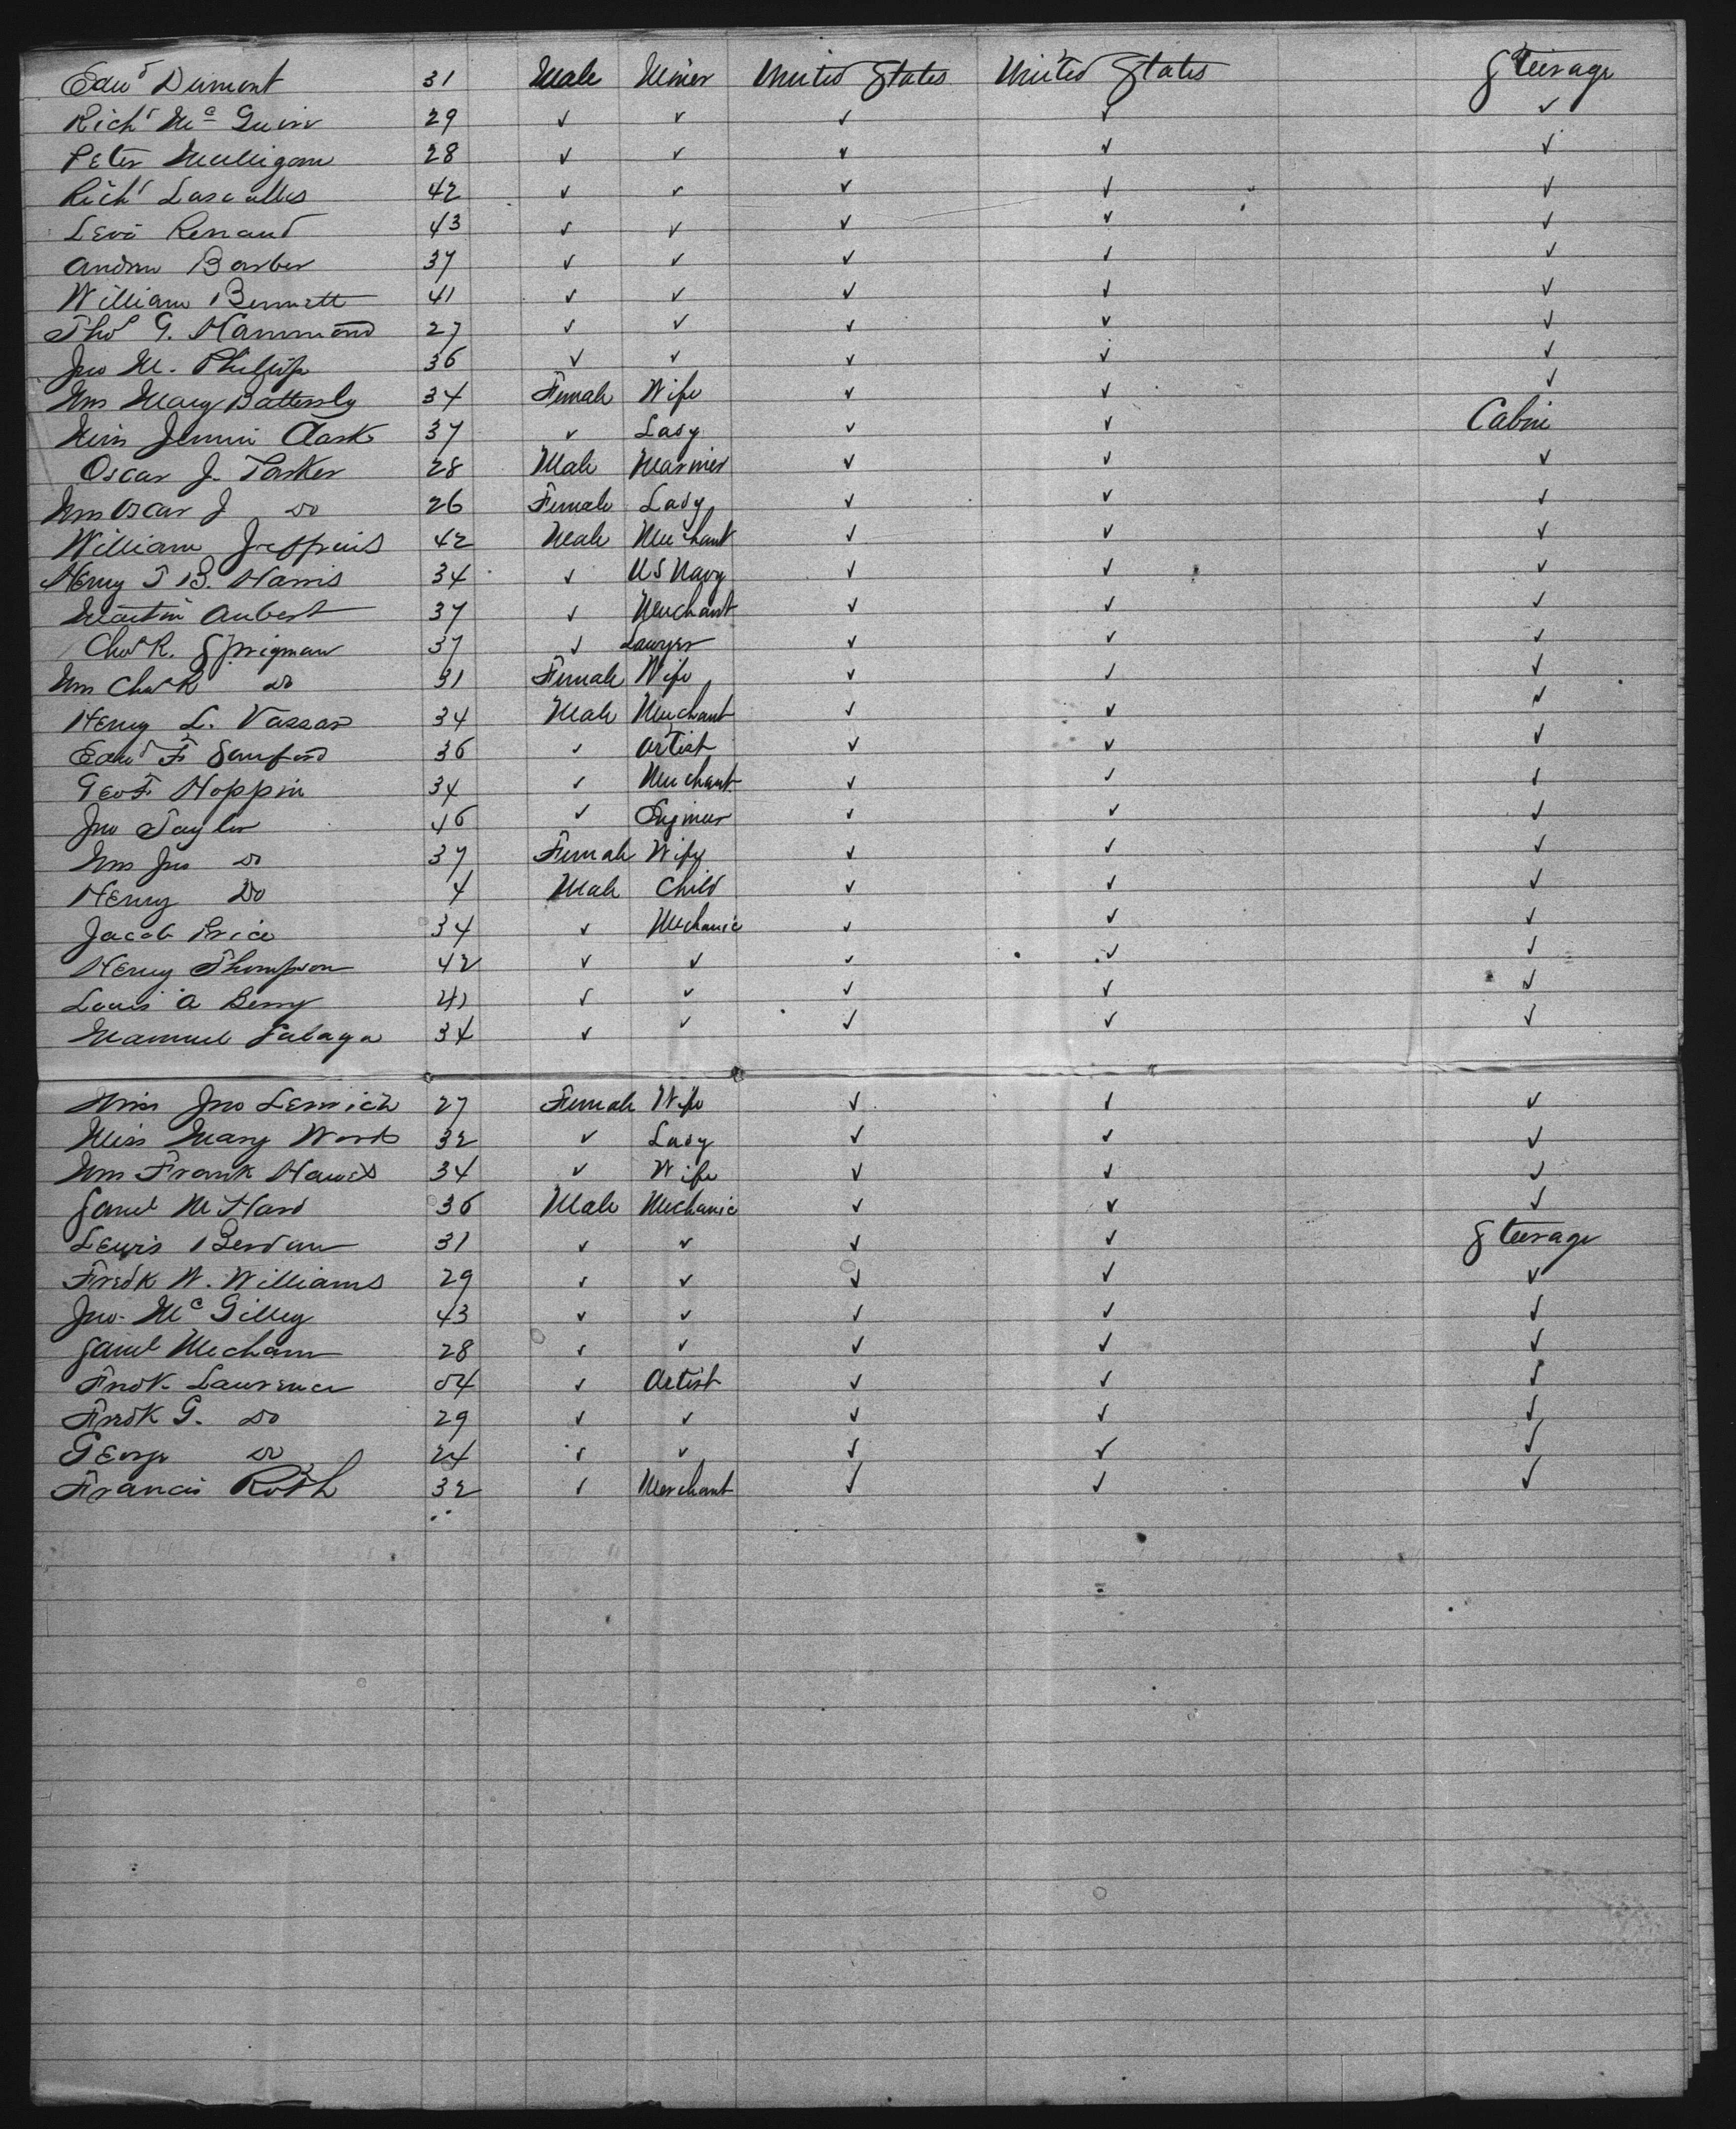 Edwd Dumont 31 Male Miner United States United States Steerage
Richd Mc Guire 29 ✓ ✓ ✓ ✓ ✓
Peter Mulligan 28 ✓ ✓ ✓ ✓ ✓
Richd Lascalles 42 ✓ ✓ ✓ ✓ ✓
Levi Renaud 43 ✓ ✓ ✓ ✓ ✓
Andrew Barber 37 ✓ ✓ ✓ ✓ ✓
William Bennett 41 ✓ ✓ ✓ ✓ ✓
Thos G. Hammond 27 ✓ ✓ ✓ ✓ ✓
Jno M. Philips 36 ✓ ✓ ✓ ✓ ✓
Mrs Mary Battersby 34 Female Wife ✓ ✓ ✓
Miss Jennie Clark 37 ✓ Lady ✓ ✓ Cabin
Oscar J. Parker 28 Male Mariner ✓ ✓ ✓
Mrs Oscar J Do 26 Female Lady ✓ ✓ ✓
William Jeffries 42 Male Merchant ✓ ✓ ✓
Henry T B. Harris 34 ✓ US Navy ✓ ✓ ✓
Martin Aubert 37 ✓ Merchant ✓ ✓ ✓
Chas R. Sprigman 37 ✓ Lawyer ✓ ✓ ✓
Mrs Chas R Do 31 Female Wife ✓ ✓ ✓
Henry L. Vassar 34 Male Merchant ✓ ✓ ✓
Edwd F Sanford 36 ✓ Artist ✓ ✓ ✓
Geo F. Hoppin 34 ✓ Merchant ✓ ✓ ✓
Jno Taylor 46 ✓ Engineer ✓ ✓ ✓
Mrs Jno Do 37 Female Wife ✓ ✓ ✓
Henry Do 4 Male Child ✓ ✓ ✓
Jacob Price 34 ✓ Mechanic ✓ ✓ ✓
Henry Thompson 42 ✓ ✓ ✓ ✓ ✓
Louis A Berry 41 ✓ ✓ ✓ ✓ ✓
Manuel 34 ✓ ✓ ✓ ✓ ✓
Jno 27 Female Wife ✓ ✓ ✓
Miss Mary 32 ✓ Lady ✓ ✓ ✓
Mrs Frank Hawes 34 ✓ Wife ✓ ✓ ✓
Saml M Hard 36 Male Mechanic ✓ ✓ ✓
Lewis Berdan 31 ✓ ✓ ✓ ✓ Steerage
Fredk W. Williams 29 ✓ ✓ ✓ ✓ ✓
Jno. Mc Gilley 43 ✓ ✓ ✓ ✓ ✓
Saml Mecham 28 ✓ ✓ ✓ ✓ ✓
Fredk Lawrence 54 ✓ Artist ✓ ✓ ✓
Fredk G. Do 29 ✓ ✓ ✓ ✓ ✓
George Do 24 ✓ ✓ ✓ ✓ ✓
Francis Roth 32 ✓ Merchant ✓ ✓ ✓